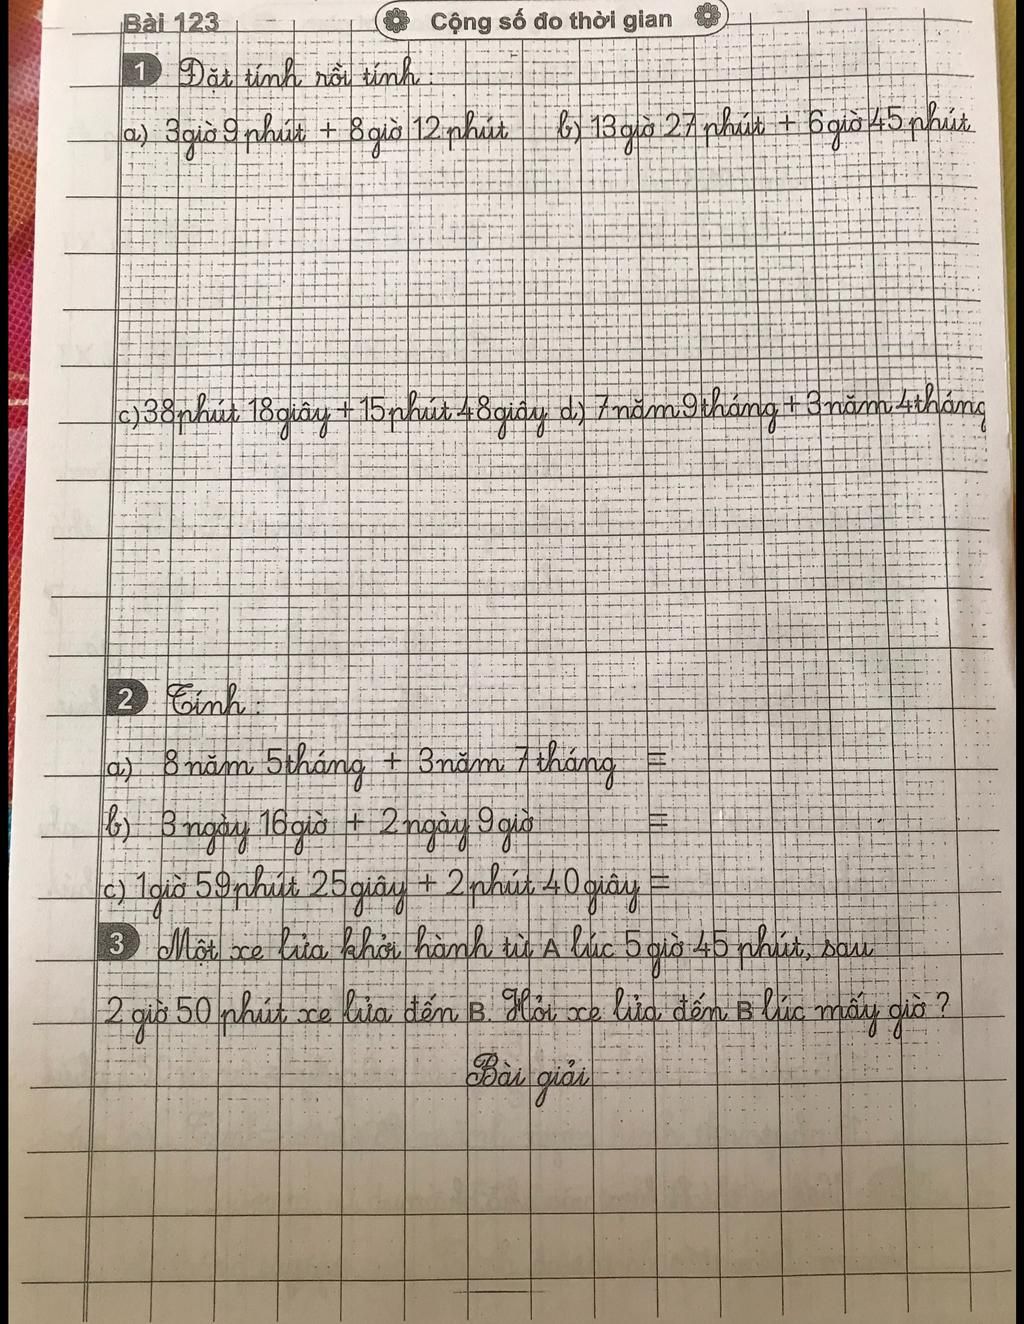 Bài 123 Cộng số đo thời gian
1 Đặt tính rồi tính:
a) 3 giờ 9 phút + 8 giờ 12 phút b) 13 giờ 27 phút + 6 giờ 45 phút
c) 38 phút 18 giây + 15 phút 48 giây d) 7 năm 9 tháng + 3 năm 4 tháng
2 Tính:
a) 8 năm 5 tháng + 3 năm 7 tháng =
b) 3 ngày 16 giờ + 2 ngày 9 giờ =
c) 1 giờ 59 phút 25 giây + 2 phút 40 giây =
3 Một xe lửa khởi hành từ A lúc 5 giờ 45 phút, sau
2 giờ 50 phút xe lửa đến B. Hỏi xe lửa đến B lúc mấy giờ?
Bài giải